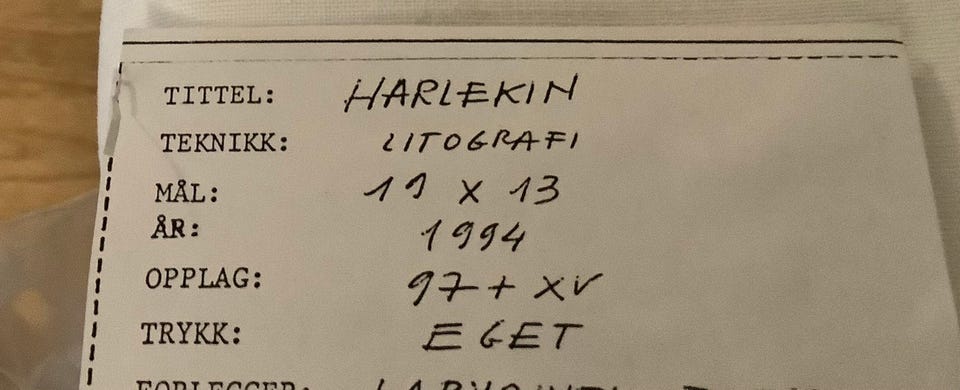 TITTEL: HARLEKIN
TEKNIKK: LITOGRAFI
MÅL: 19 X 13
ÅR: 1994
OPPLAG: 97 + XV
TRYKK: EGET